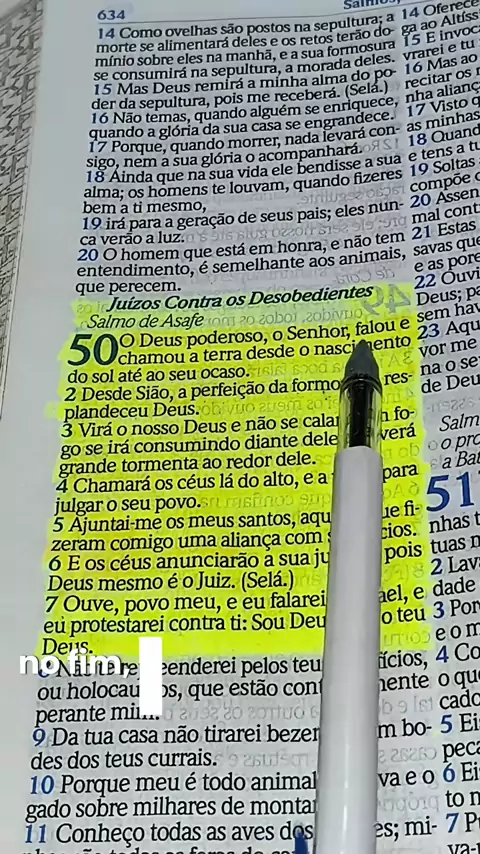 634
14 Como ovelhas são postos na sepultura; a
morte se alimentará deles e os retos terão do-
mínio sobre eles na manhã, e a sua formosura
se consumirá na sepultura, a morada deles.
15 Mas Deus remirá a minha alma do po-
der da sepultura, pois me receberá. (Selá.)
16 Não temas, quando alguém se enriquece,
quando a glória da sua casa se engrandece.
17 Porque, quando morrer, nada levará con-
sigo, nem a sua glória o acompanhará.
18 Ainda que na sua vida ele bendisse a sua
alma; os homens te louvam, quando fizeres
bem a ti mesmo,
19 irá para a geração de seus pais; eles nun-
ca verão a luz.
20 O homem que está em honra, e não tem
entendimento, é semelhante aos animais,
que perecem.
Juízos Contra os Desobedientes
Salmo de Asafe
50 O Deus poderoso, o Senhor, falou e
chamou a terra desde o nascimento
do sol até ao seu ocaso.
2 Desde Sião, a perfeição da formo res-
plandeceu Deus.
3 Virá o nosso Deus e não se calar fo-
go se irá consumindo diante dele verá
grande tormenta ao redor dele.
4 Chamará os céus lá do alto, e a para
julgar o seu povo.
5 Ajuntai-me os meus santos, aqu ue fi-
zeram comigo uma aliança com cios.
6 E os céus anunciarão a sua ju pois
Deus mesmo é o Juiz. (Selá.)
7 Ouve, povo meu, e eu falarei ael, e
eu protestarei contra ti: Sou Deu o teu
Deus.
no fim,
eenderei pelos teu ifícios,
ou holocau os, que estão cont mente
perante mim.
9 Da tua casa não tirarei bezer m bo-
des dos teus currais.
10 Porque meu é todo animal va e o
gado sobre milhares de montan
11 Conheço todas as aves dos es; mi-
14 Oferece
ga ao Altíss
15 E invoc
vrarei e tu
16 Mas ao
recitar os
nha alianç
17 Visto q
as minhas
18 Quand
e tens a tu
19 Soltas
compõe
20 Assen
mal cont
21 Estas
savas que
e as pore
22 Ouvi
Deus; pa
sem hav
23 Aqu
vor me
na o se
de Deu
Salm
o pro
a Bat
51
nhas t
tuas m
2 Lav
dade
3 Por
e o m
4 Co
o que
cado
5 Ei
peca
6 Ei
to n
7 Pu
va-